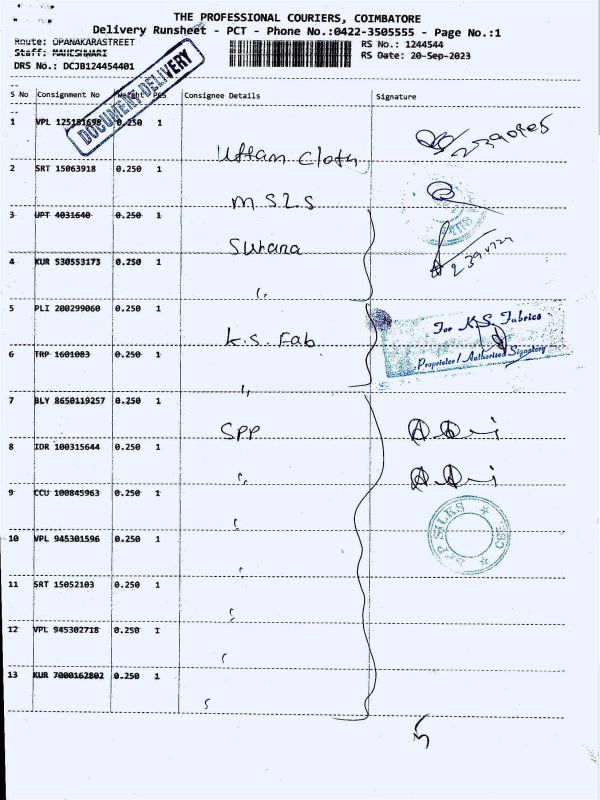 THE PROFESSIONAL COURIERS, COIMBATORE
Delivery Runsheet - PCT - Phone No.:0422-3505555 - Page No.:1
Route: OPANAKARASTREET
RS No.: 1244544
Staff: MAHESHWARI
RS Date: 20-Sep-2023
DRS No.: DCJB124454401
DOCUMENT DELIVERY
S No Consignment No Weight PCS Consignee Details Signature
1 VPL 125181698 0.250 1 Uttam Cloth
2 SRT 15063918 0.250 1 M S L S
3 UPT 4031640 0.250 1 Surana
4 KUR 530553173 0.250 1 "
5 PLI 200299060 0.250 1 K.S. Fab
For K.S. Fabrics
Proprietor / Authorised Signatory
6 TRP 1601003 0.250 1 "
7 BLY 8650119257 0.250 1 SPP
8 IOR 100315644 0.250 1 "
9 CCU 100845963 0.250 1 "
P SILKS ★ CBE ★
10 VPL 945301596 0.250 1 "
11 SRT 15052103 0.250 1 "
12 VPL 945302718 0.250 1 "
13 KUR 7000162802 0.250 1 "